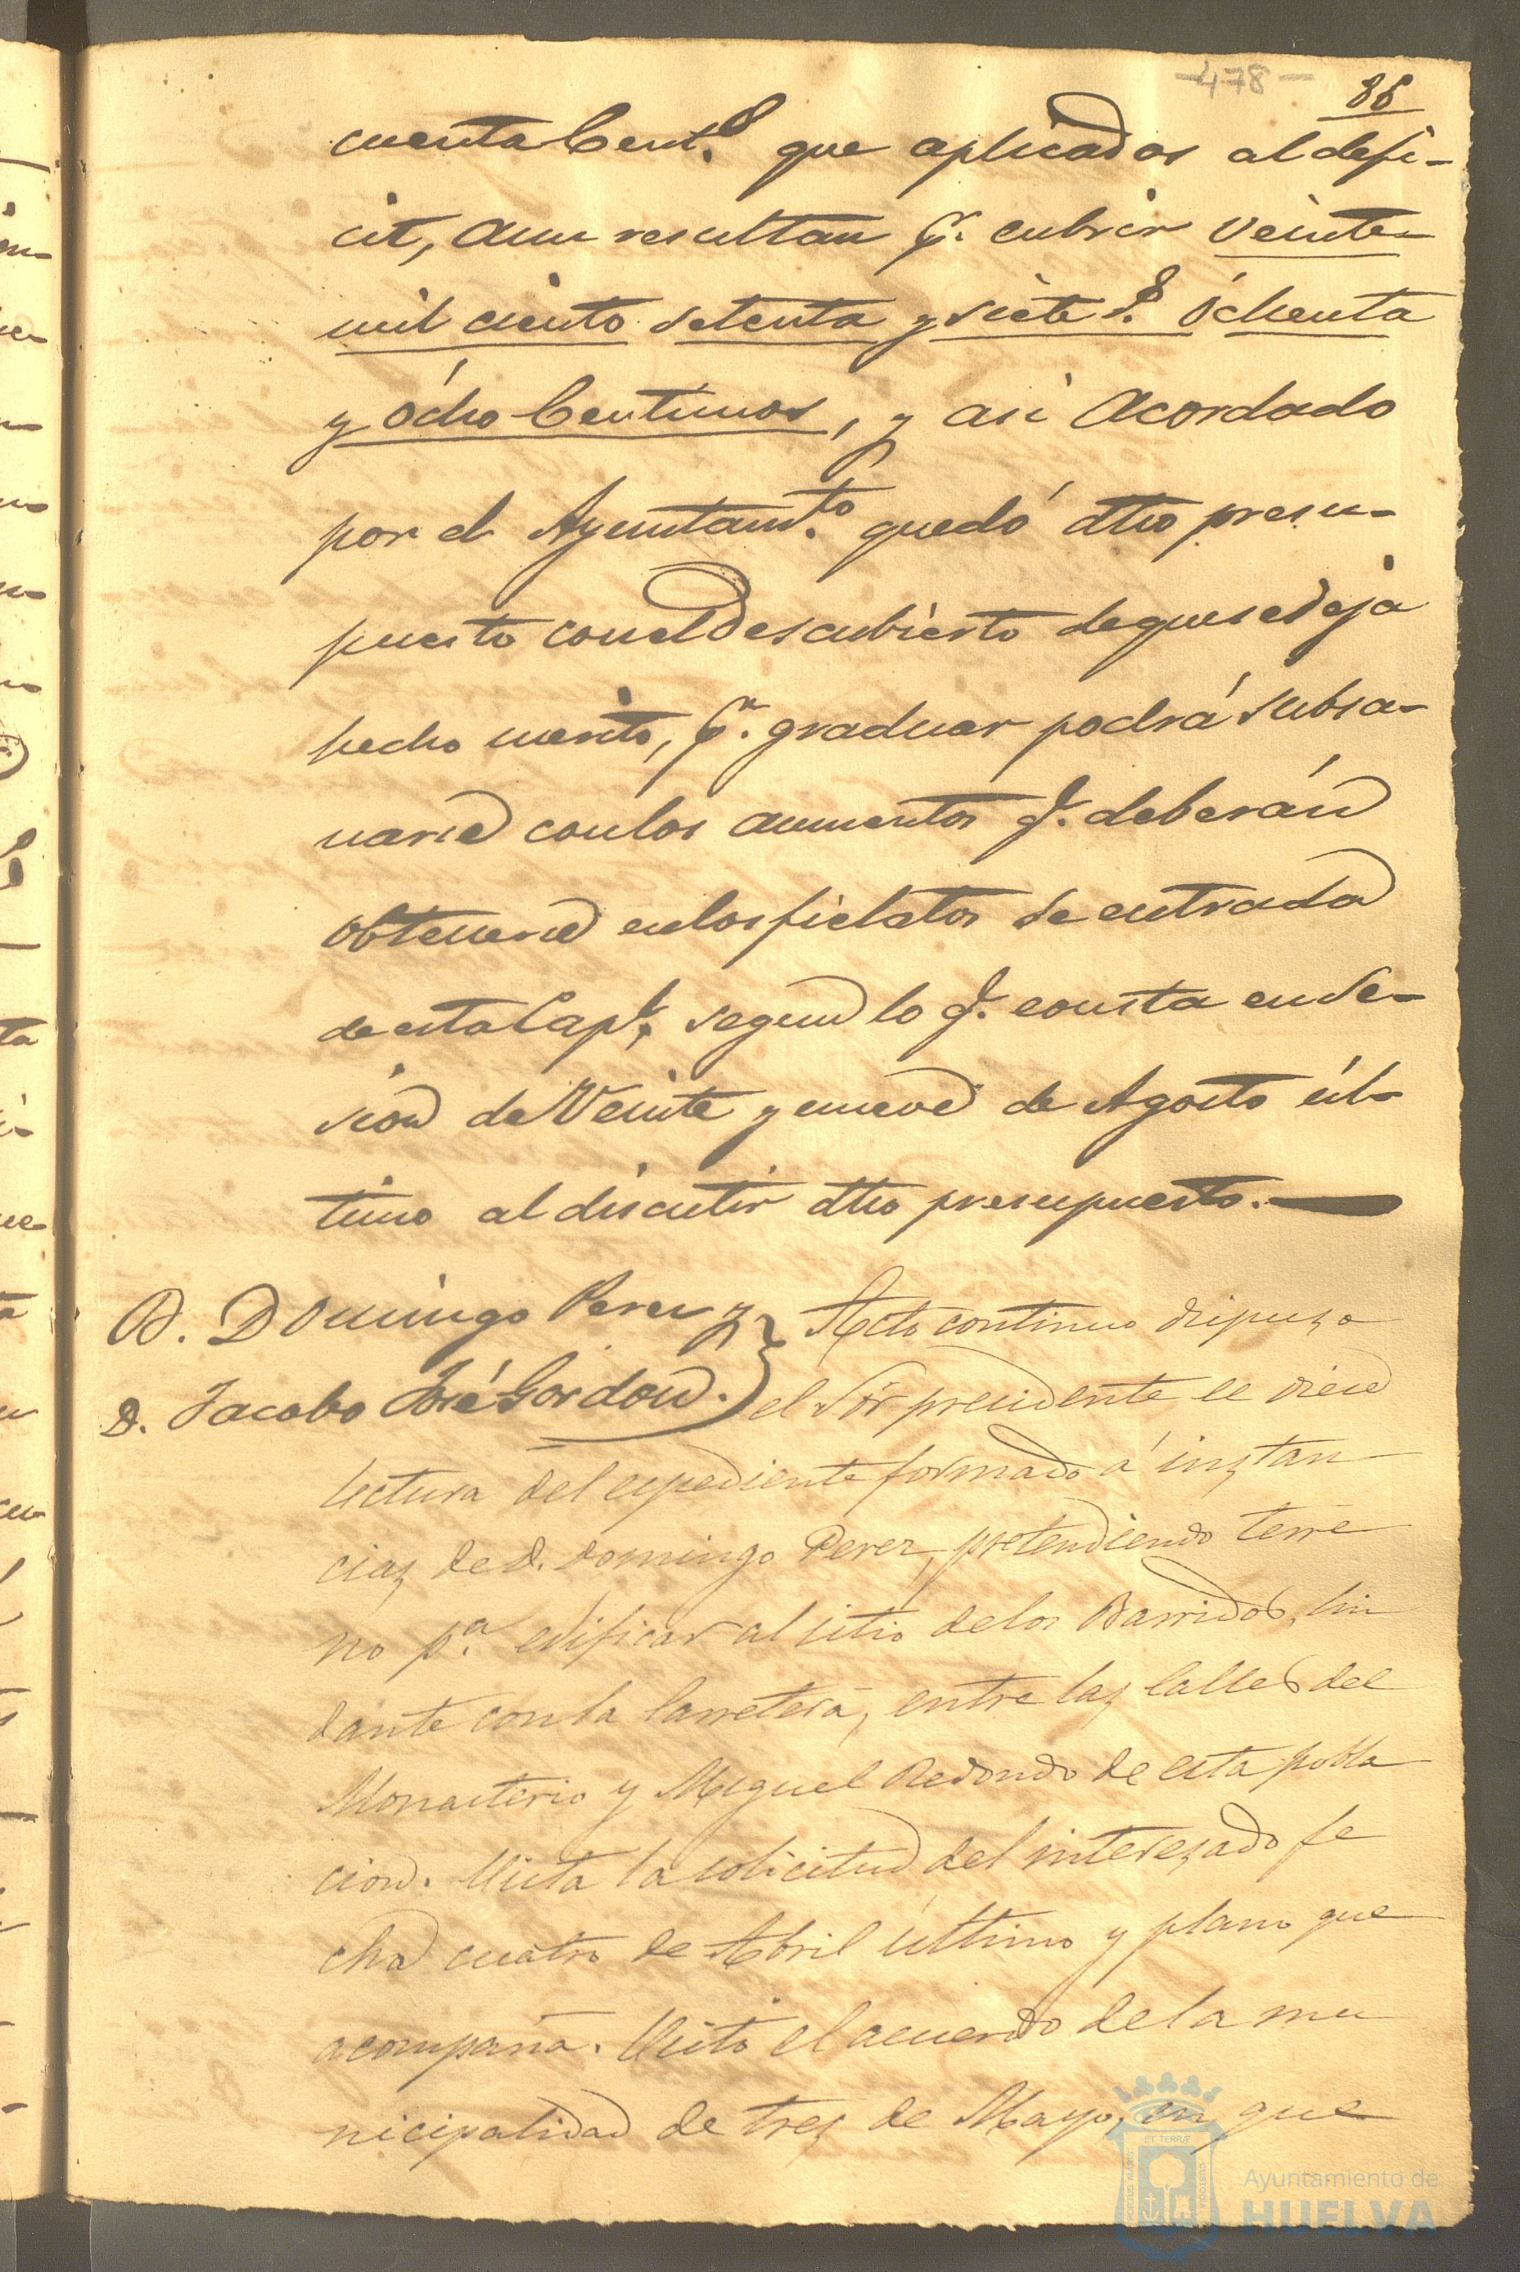 -478-
86
cuenta Cent.s que aplicados al defi-
cit, aun resultan p.a cubrir veinte
mil ciento setenta y siete r.s ochenta
y ócho Centimos, y asi acordado
por el Ayuntam.to quedó dho presu-
puesto con el descubierto de que se deja
hecho merito, p.a graduar podrá subsa-
narse con los aumentos q.e deberán
obtenerse en los fielatos de entrada
de esta Cap.l, segun lo q.e consta en se-
sion de Veinte y nueve de Agosto úl-
timo al discutir dho presupuesto.
D. Domingo Perez y
D. Jacobo José Gordon.
Acto continuo dispuso
el Sór presidente se diese
lectura del espediente formado á instan
cias de D. Domingo Perez, pretendiendo terre
no p.a edificar al sitio de los Barridos, lin
dante con la Carretera, entre las Calles del
Monasterio y Miguel Redondo de esta pobla
cion. Vista la solicitud del interesado fe
cha cuatro de Abril último y plano que
acompaña. Visto el acuerdo de la mu
nicipalidad de tres de Mayo, en que
Ayuntamiento de
HUELVA